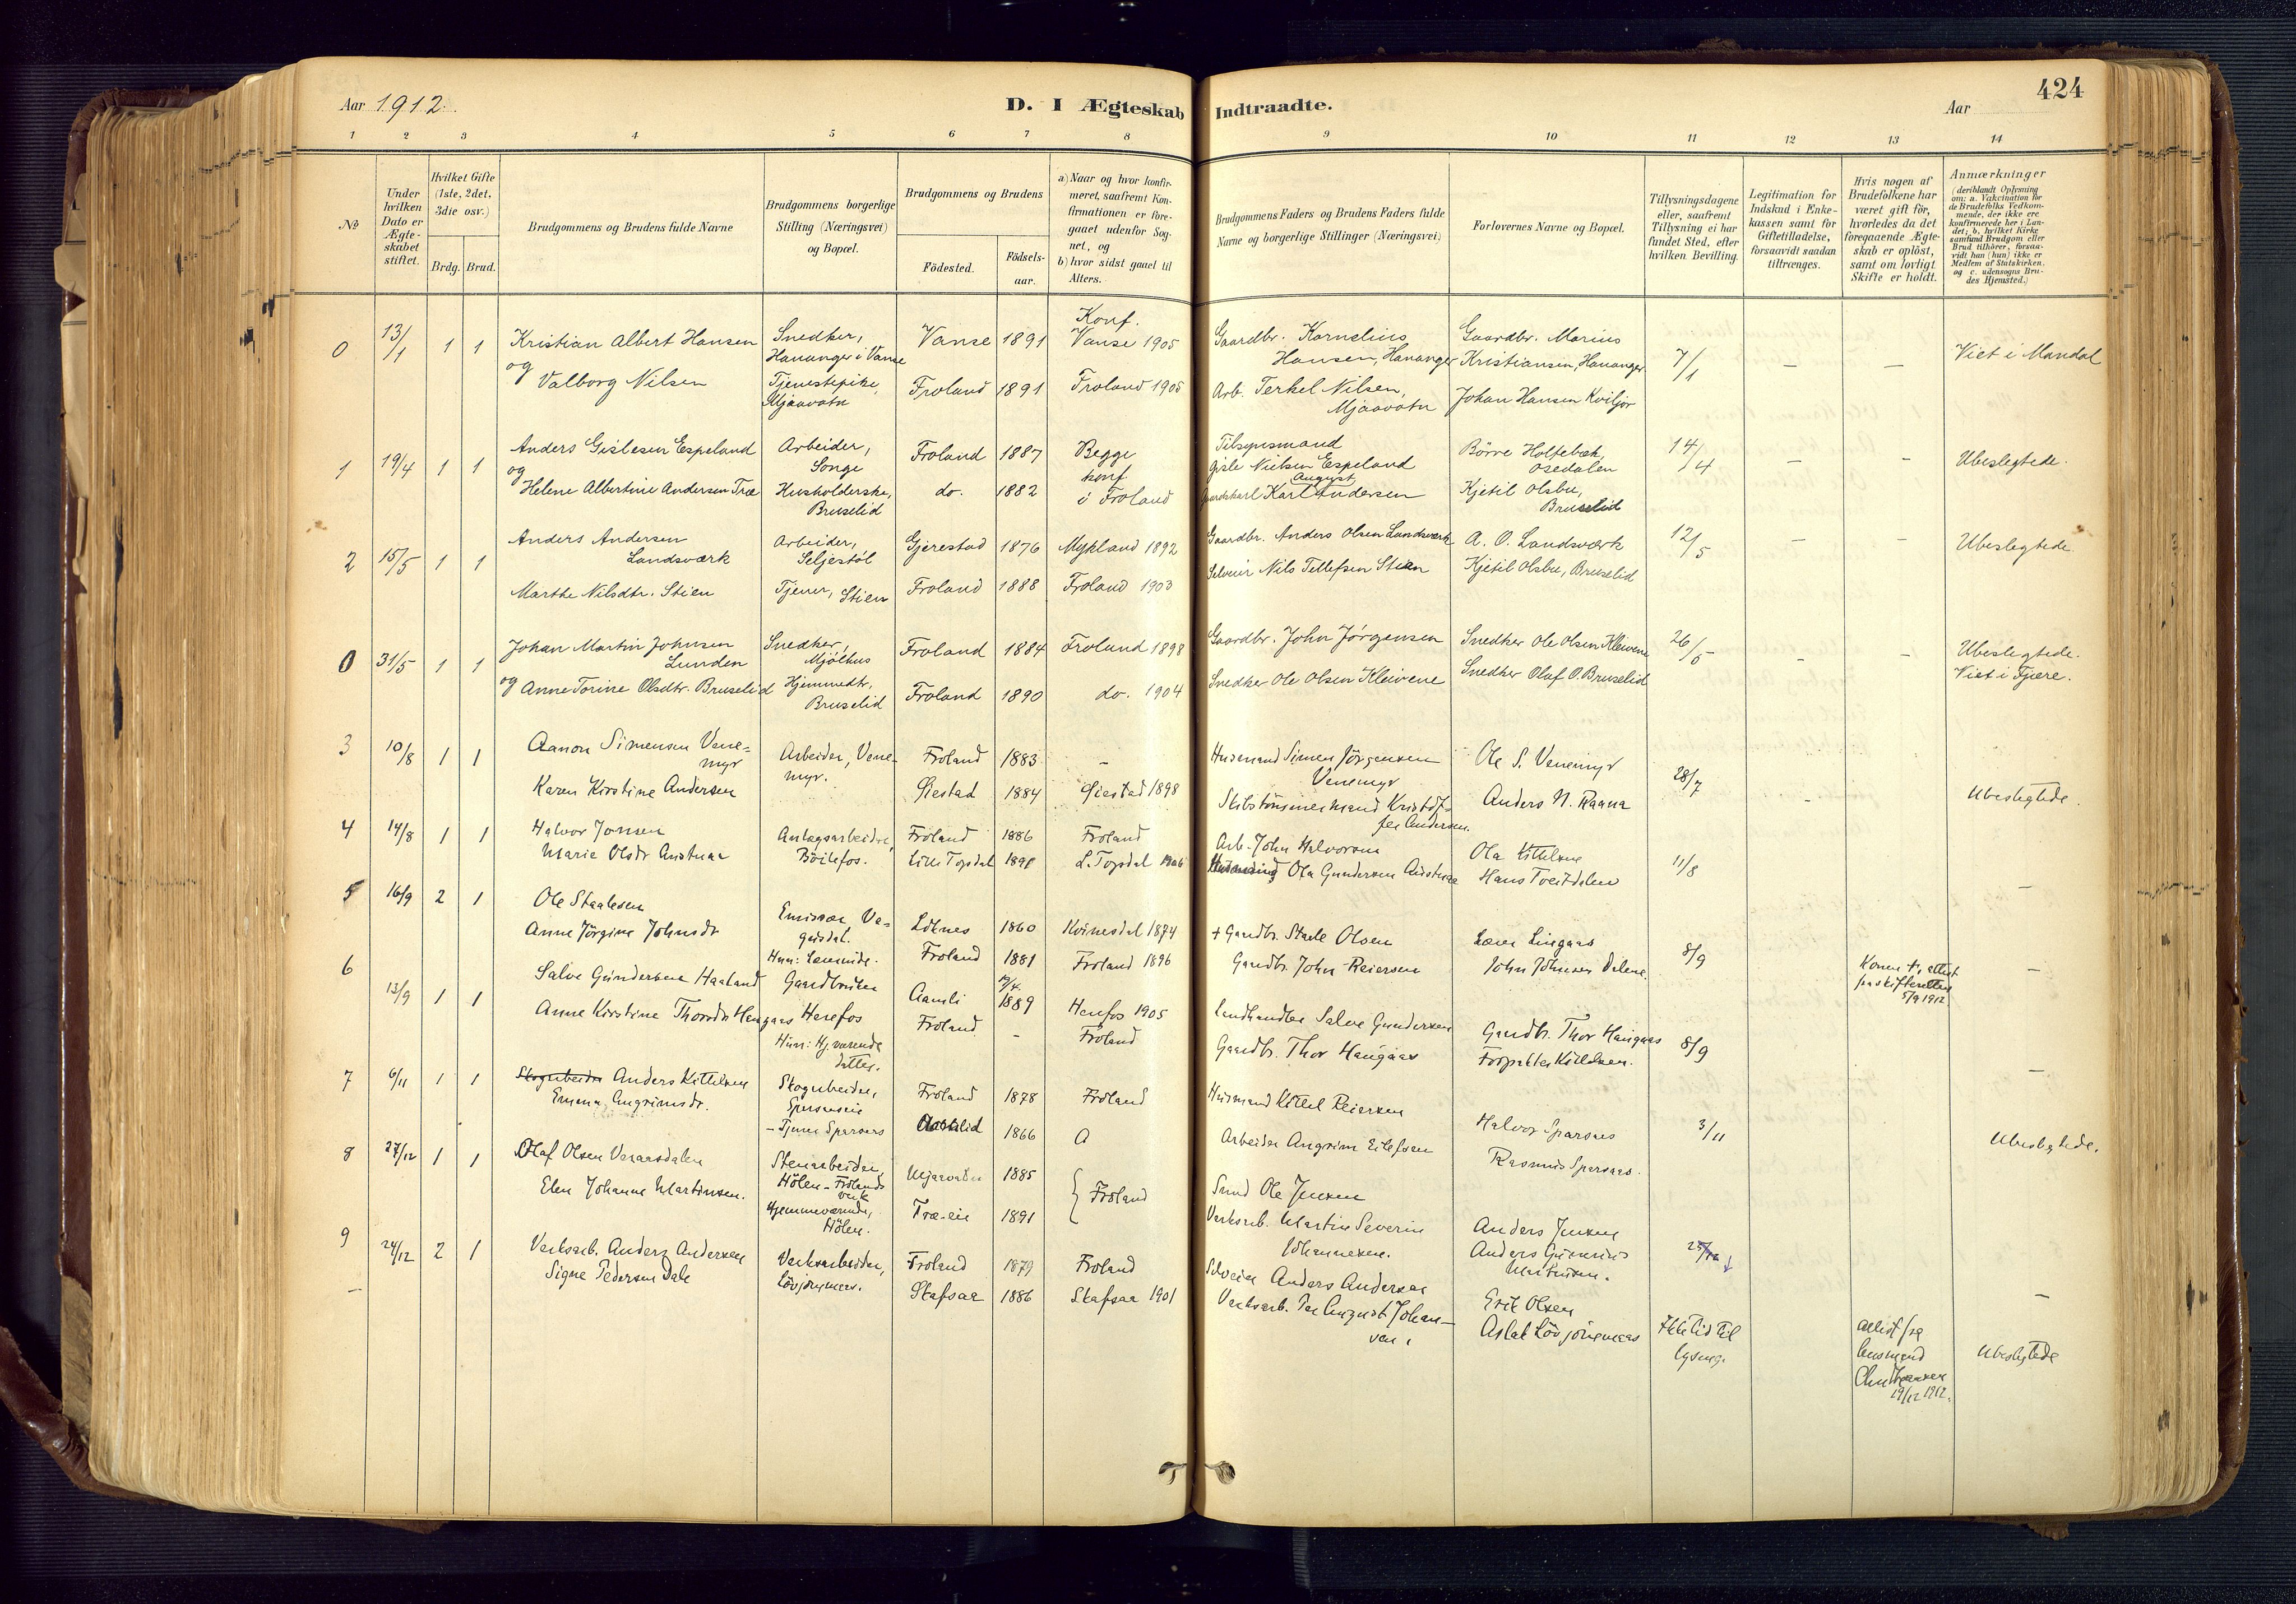 Aar 1912.
D. I Ægteskab Indtraadte.
Aar
424
1 2 3 4 5 6 7 8 9 10 11 12 13 14
№
Under hvilken Dato er Ægteskabet stiftet.
Hvilket Gifte (1ste, 2det, 3die osv.)
Brdg. Brud.
Brudgommens og Brudens fulde Navne
Brudgommens borgerlige Stilling (Næringsvei) og Bopæl.
Brudgommens og Brudens
Födested.
Födsels-aar.
a) Naar og hvor konfir-
meret, saafremt Kon-
firmationen er fore-
gaaet udenfor Sog-
net, og
b) hvor sidst gaaet til
Alters.
Brudgommens Faders og Brudens Faders fulde
Navne og borgerlige Stillinger (Næringsvei)
Forlovernes Navne og Bopæl.
Tillysningsdagene
eller, saafremt
Tillysning ei har
fundet Sted, efter
hvilken Bevilling.
Legitimation for
Indskud i Enke-
kassen samt for
Giftetilladelse,
forsaavidt saadan
tiltrænges.
Hvis nogen af
Brudefolkene har
været gift för,
hvorledes da det
foregaaende Ægte-
skab er oplöst,
samt om lovligt
Skifte er holdt.
Anmærkninger
(deriblandt Oplysning
om: a. Vakcination for
de Brudefolks Vedkom-
mende, der ikke ere
konfirmerede her i Lan-
det; b. hvilket Kirke-
samfund Brudgom eller
Brud tilhører, forsaa-
vidt han (hun) ikke er
Medlem af Statskirken.
og c. udensogns Bru-
des Hjemsted.)
0 13/1 1 1 Kristian Albert Hansen Snedker, Hananger i Vanse Vanse 1891 Konf. Vanse 1905 Gaardbr. Kornelius Hansen, Hananger Gaardbr. Marius Kristiansen, Hananger 7/1 — — Viet i Mandal
og Valborg Nilsen Tjenestepike, Mjaavatn Froland 1891 Froland 1905 Arb. Terkel Nilsen, Mjaavatn Johan Hansen Kviljor
1 19/4 1 1 Anders Gislesen Espeland Arbeider, Songe Froland 1887 Begge konf i Froland Tilsynsmand Gisle Nielsen Espeland Börre Holtebæk, Osedalen 14/4 — — Ubeslegtede.
og Helene Albertine Andersen Træ Husholderske, Bruselid do. 1882 Karl August Andersen Kjetil Olsbu, Bruselid
2 15/5 1 1 Anders Andersen Landsværk Arbeider, Seljestöl Gjerestad 1876 Mykland 1892 Gaardbr. Anders Olsen Landsværk A. O. Landsværk 12/5 — — Ubeslegtede
Marthe Nilsdtr. Stien Tjener, Stien Froland 1888 Froland 1903 Selveier Nils Tellefsen Stien Kjetil Olsbu, Bruselid
0 31/5 1 1 Johan Martin Johnsen Lunden Snedker, Mjölhus Froland 1884 Froland 1898 Gaardbr. John Jörgensen Snedker Ole Olsen Kleivene 26/5 — — Ubeslegtede. Viet i Fjære.
og Anne Torine Olsdtr. Bruselid Hjemmedtr, Bruselid Froland 1890 do. 1904 Snedker Ole Olsen Kleivene Snedker Olaf O. Bruselid
3 10/8 1 1 Aanon Simensen Venemyr Arbeider, Venemyr. Froland 1883 — Husmand Simen Jörgensen Venemyr Ole S. Venemyr 28/7 — Ubeslegtede.
Karen Kirstine Andersen Öiestad 1884 Öiestad 1898 Skibstömmermand Kristoffer Andersen. Anders N. Raana
4 14/8 1 1 Halvor Jonsen Anlegsarbeider, Böilefos. Froland 1886 Froland Arb. John Halvorsen Ola Kittelsen 11/8 —
Marie Olsdr Austnaa Lille Topsdal L. Topsdal 1906 Ola Gundersen Austnaa Hans Tveitdalen
5 16/9 2 1 Ole Staalesen Emissær Vegusdal. 1860 Kvinesdal 1874 + Gaardbr. Staale Olsen Lærer Lingaas 8/9 Konen +, attest fra skifteretten 5/9 1912 —
Anne Jörgine Johnsdr Hun: Froland 1881 Froland 1896 Gaardbr. John Reiersen John Johnsen Dalene.
6 13/9 1 1 Salve Gundersen Haaland Gaardbruker Herefos Aamli 1889 Herefos 1905 Landhandler Salve Gundersen Gaardbr. Thor Haugaas 8/9 —
Anne Kirstine Thorsdr Haugaas Hun: Hj. værende datter. Froland — Froland Gaardbr. Thor Haugaas Kittelsen.
7 6/11 1 1 Anders Kittelsen Skogarbeider, Froland 1878 Froland Husmand Kittel Reiersen Halvor Sparsaas 3/11 Ubeslegtede.
Emma Angrimsdr. — Tjener Sparsaas 1866 A Arbeider Angrim Eilefsen Rasmus Sparsaas.
8 27/12 1 1 Olaf Olsen Vanarsdalen Stenarbeider, Hölen - Frolands verk Mjaavatn 1885 Froland Ole Jensen Anders Jensen
Elen Johanne Martinsen. Hjemmeværende, Hölen. Træ-eie 1891 Verksarb. Martin Severin Johannesen. Anders Gunerius Martinsen. —
9 24/12 2 1 Verksarb. Anders Andersen Verksarbeider, Lövjomaas. Froland 1879 Froland Selveier Anders Andersen Erik Olsen Attest fra lensmand 19/12 1912. Ubeslegtede
— Signe Pedersen Dale Skafsaa 1886 Skafsaa 1901 Verksarb. Per August Johansen. Aslak Lövjomaas Ikke tid til lysning.